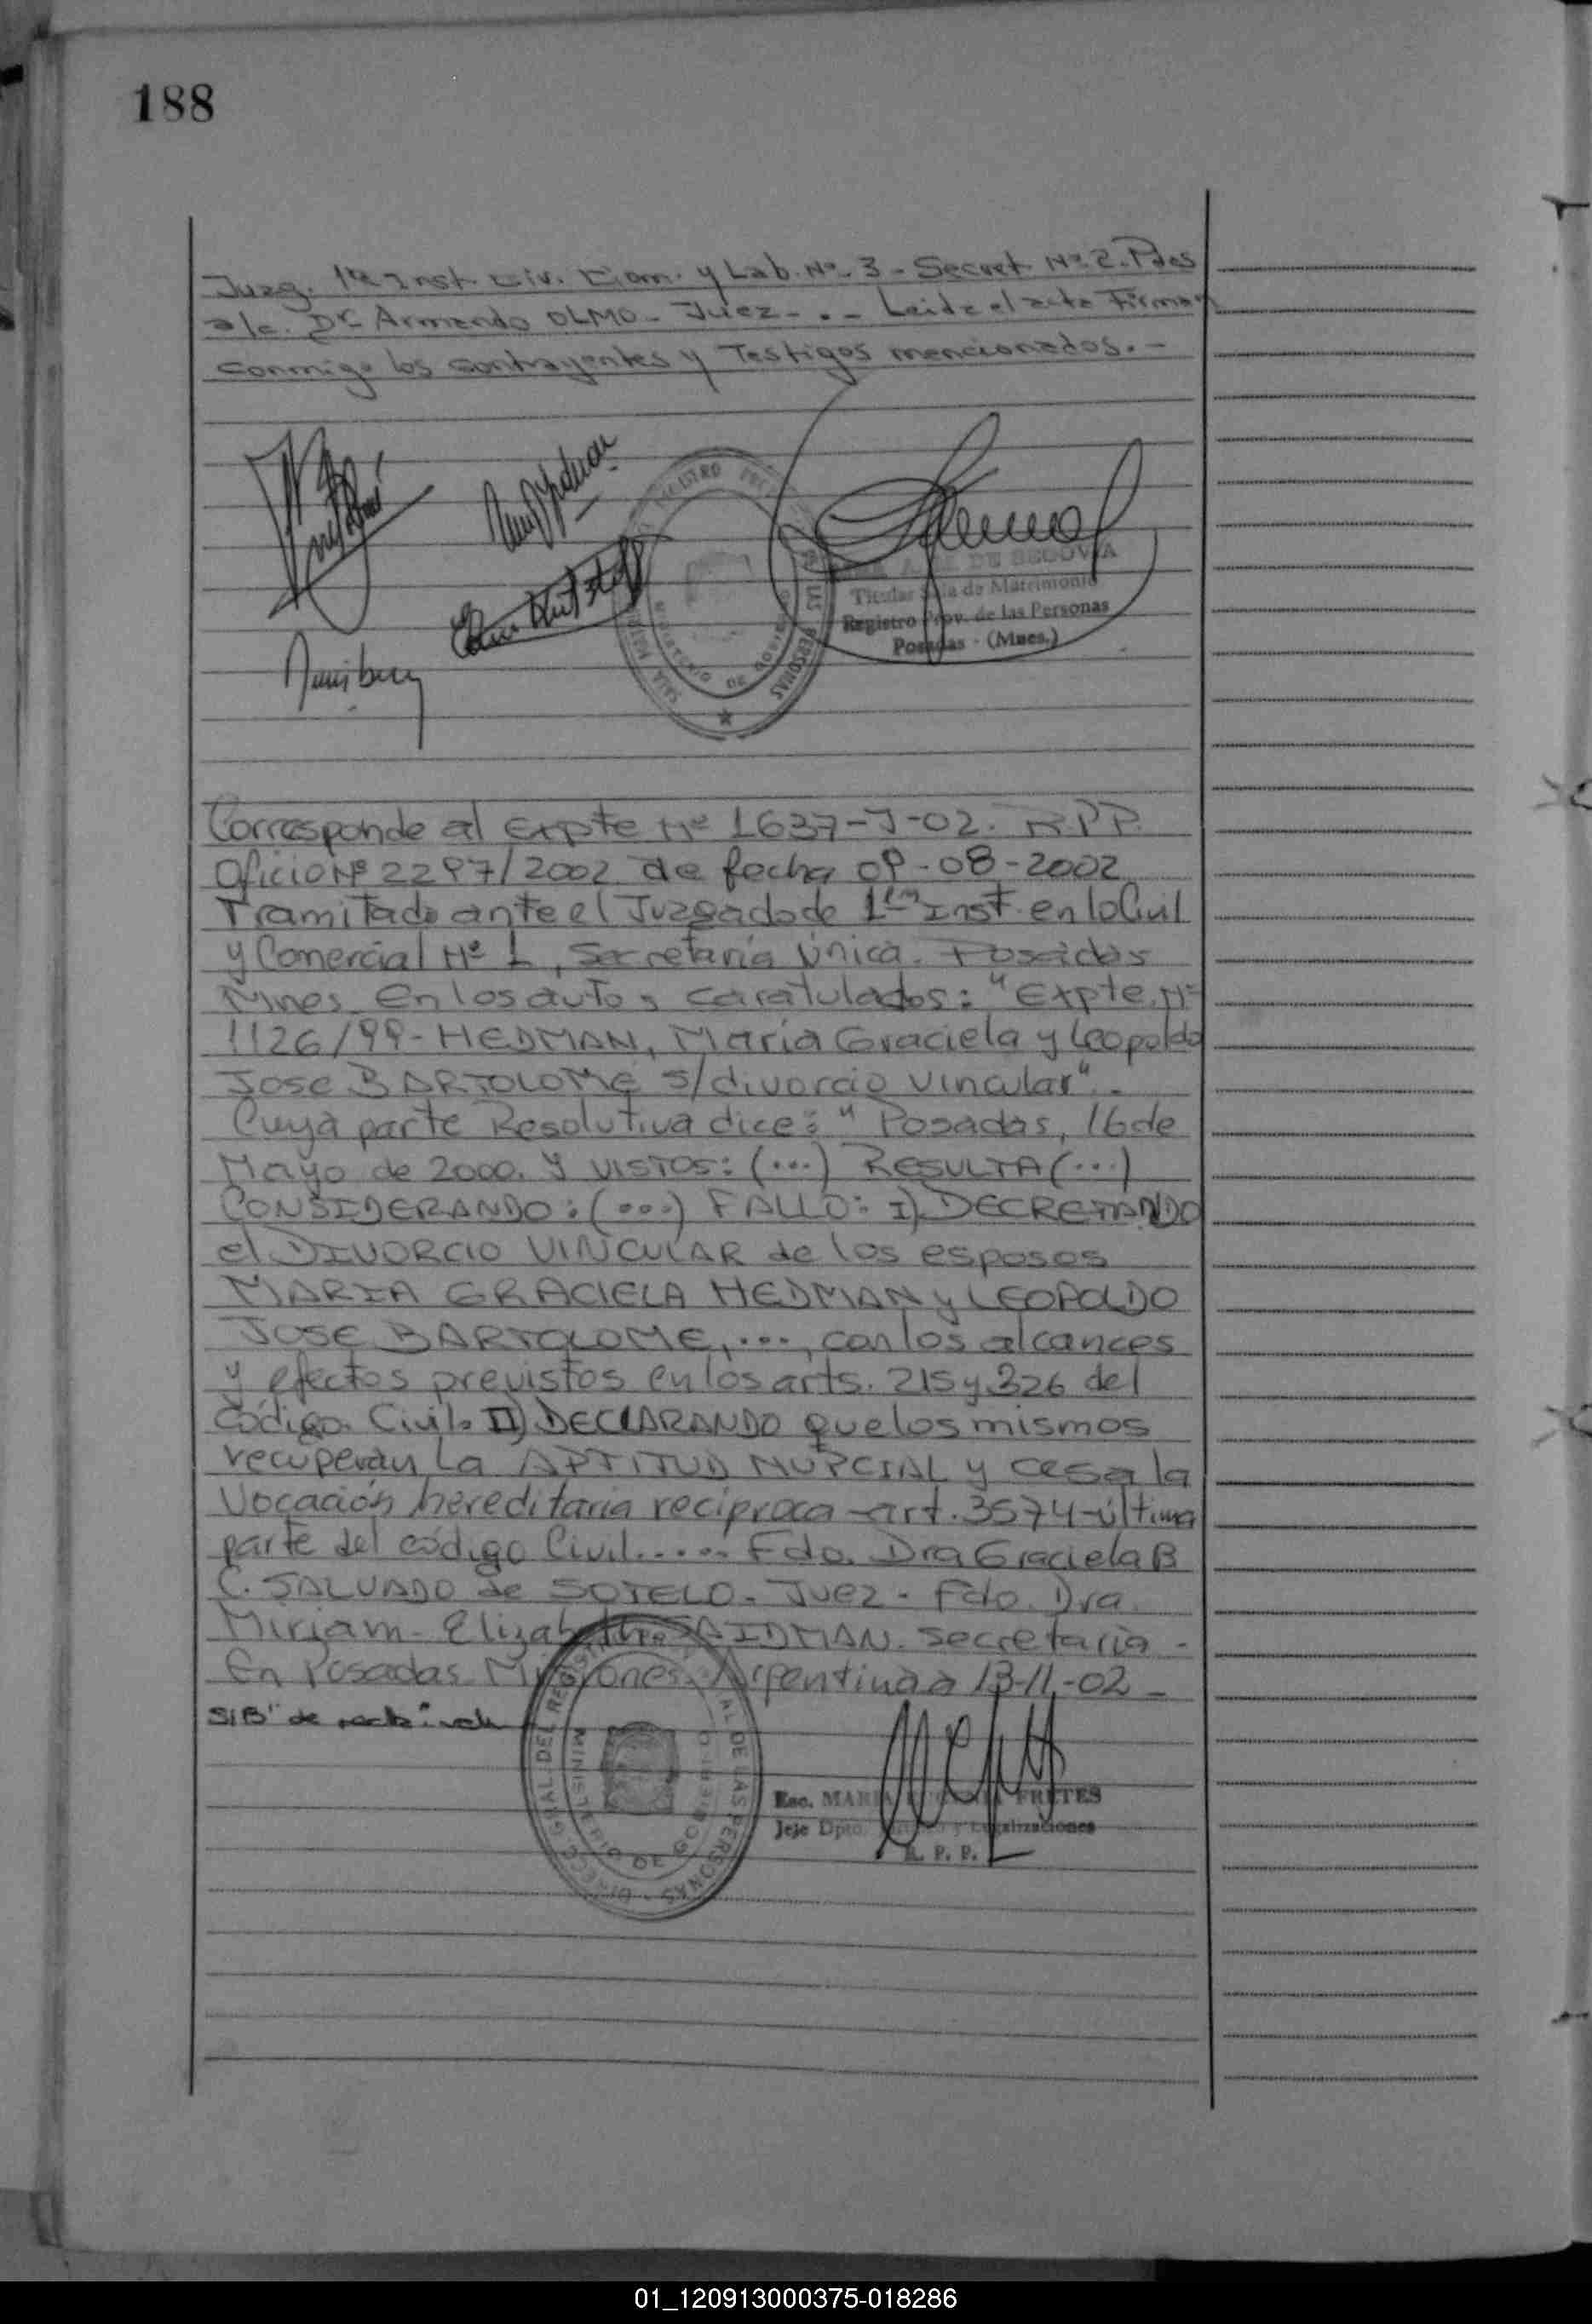 188
Juzg. 1ra Inst. Civ. Com. y Lab. Nº 3 - Secret. Nº 2. Pdas
a/c. Dr. Armando OLMO - Juez - . - Leida el acta Firman
conmigo los contrayentes y Testigos mencionados. -
REGISTRO
DE LAS PERSONAS
MINISTERIO DE GOBIERNO
DE SEGOVIA
Titular Sala de Matrimonio
Registro Prov. de las Personas
Posadas - (Mnes.)
Corresponde al Expte Nº 1637-J-02. R.P.P.
Oficio Nº 2297/2002 de fecha 09-08-2002
Tramitado ante el Juzgado de 1ra Inst. en lo Civil
y Comercial Nº 1, Secretaría Única. Posadas
Mnes. En los autos caratulados: "Expte. Nº
1126/99 - HEDMAN, María Graciela y Leopoldo
Jose BARTOLOME s/divorcio vincular".-
Cuya parte Resolutiva dice: "Posadas, 16 de
Mayo de 2000. Y VISTOS: (...) RESULTA (...)
CONSIDERANDO: (...) FALLO: I) DECRETANDO
el DIVORCIO VINCULAR de los esposos
MARIA GRACIELA HEDMAN y LEOPOLDO
JOSE BARTOLOME, ..., con los alcances
y efectos previstos en los arts. 215 y 326 del
Código Civil. II) DECLARANDO que los mismos
recuperan la APTITUD NUPCIAL y cesa la
Vocación hereditaria reciproca -art. 3574- última
parte del código Civil..... Fdo. Dra Graciela B
C. SALVADO de SOTELO - Juez - Fdo. Dra.
Miriam Elizabeth SAIDMAN. Secretaria -
En Posadas Misiones Argentina a 13-11-02 -
S/B" de
DIRECC. GRAL. DEL REGISTRO PROVINCIAL DE LAS PERSONAS
MINISTERIO DE GOBIERNO
Esc. MARIA FRETES
Jefe Dpto. y Legalizaciones
R. P. P.
01_120913000375-018286